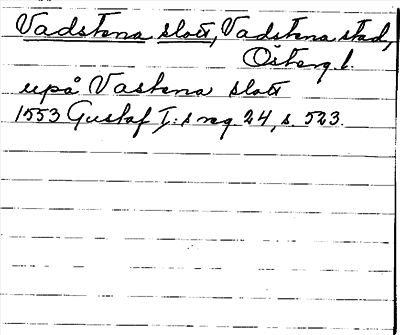 Vadstena slott, Vadstena stad,
Österg. l.
upå Vastena slott
1553 Gustaf I:s reg 24, s. 523.